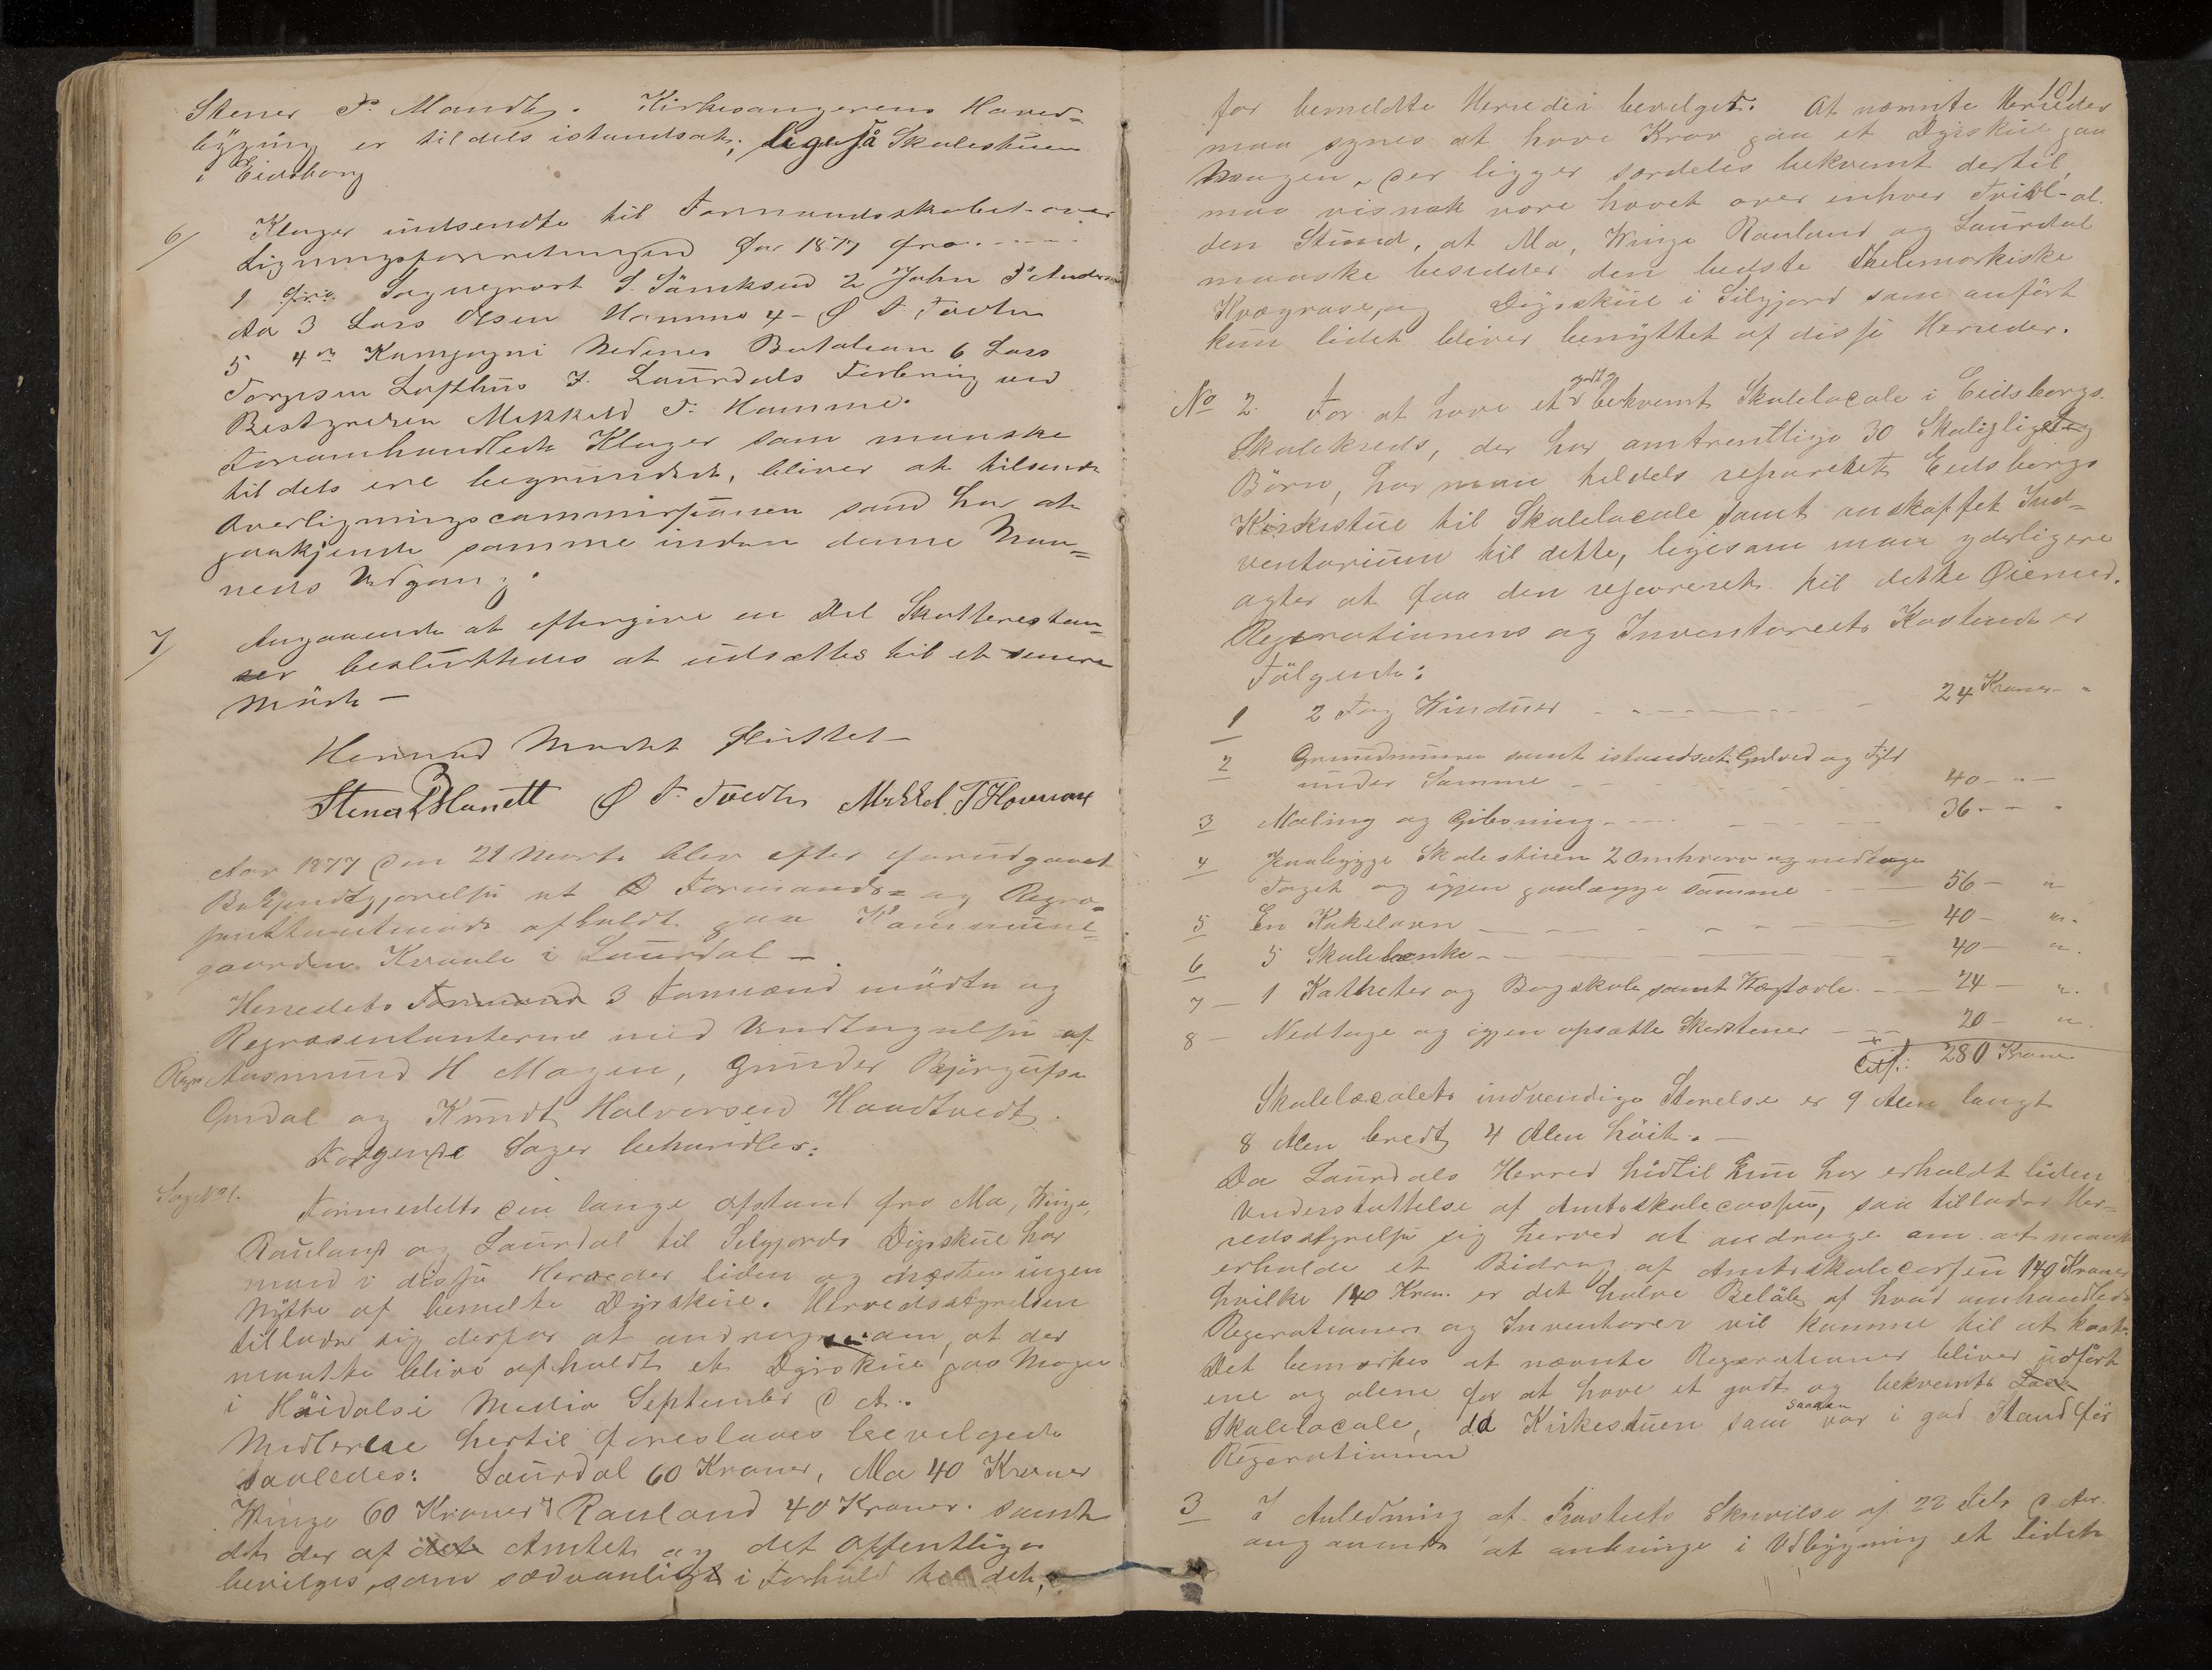 Stener P. Mandt. Kirkesangerens Hoved-
bÿgning er tildels istandsat; ligeså Skolestuen
i Eidsborg
6/ Klager indsendte til Formandsskabet over
Ligningsforretningen for 1877 fra
1 fra Sogneprest S. Sörensen 2 John
3 Lars Olsen Homme 4 - Ø T. Tveten
5 4de Kompagni Nedenes Batalion 6 Lars
Torgesen Lofthus 7. Laurdals Forening ved
Bestyreren Mikkel T. Homme.
Foranhandlede Klager som maaske
til dels ere begrundede, bliver at tilsende
Overligningscommissionen som har at
paakjende samme inden denne Maa-
neds Udgang.
7/ Angaaende at eftergive en Del Skatterestan-
ser besluttedes at udsættes til et senere
Möde -
Hermed Mödet sluttet
Stener P Mandt Ø T. Tveten Mikkel T Homme
Aar 1877 den 21 Marts blev efter forudgaaet
Bekjendtgjørelse et Formands- og Repræ-
sentantmöde afholdt paa Kommune-
gaarden Kraale i Laurdal -
Herredets Formænd 3 Formænd mödte og
Repræsentanterne med Undtagelse af
Repr Aasmund H Mogen, Gunder Björgufsen
Gurdal og Knudt Halvorsen Haadtvedt.
Følgende Sager behandles:
Sag No 1.
Formedelts den lange Afstand fra Mo, Winje,
Rauland og Laurdal til Seljords Dyrskue har
mand i disse Herreder liden og næsten ingen
Nytte af bemelte Dyrskue. Herredsstyrelsen
tillader sig derfor at andrage om, at der
maatte blive afholdt et Dyrskue paa Mogen
i Höidalsi Medio September d A.
Midlerne hertil foreslaaes bevilgede
saaledes: Laurdal 60 Kroner, Mo 40 Kroner
Winje 60 Kroner Rauland 40 Kroner. samt
det der af det Amtet og det Offentlige
bevilges, som sædvanligt i Forhold til det,
101
for bemeldte Herreder bevilget. At nævnte Herreder
maa synes at have Krav paa et Dyrskue paa
Mogen, der ligger særdeles bekvemt dertil,
maa visnok være hævet over enhver Tvivl al
den Stund, at Mo, Winje Rauland og Laurdal
maaske besidder den bedste Thelemarkiske
Kvægrase, og Dyrskue i Siljord som anfört
kun lidet bliver benÿttet af disse Herreder.
No 2. For at have et godt og bekvemt Skolelocale i Eidsborgs
Skolekreds, der har omtrentlige 30 Skolepligtig
Börn, har man tildels repareret Eidsborgs
Kirkestue til Skolelocale samt anskaffet Ind-
ventarium til dette, ligesom man yderligere
agter at faa den repareret til dette Øiemed.
Reparationens og Inventariets Kostende er
Fölgende:
1 2 Fag Vinduer 24 Kroner "
2 Grundmuren samt istandsat Gulved og Fyld
under Samme 40 - " -
3 Maling og Gibsning 36 - "
4 Paabygge Skolestuen 2 Omhverv og nedtage
Taget og igjen paalægge samme 56 - "
5 En Kakelovn 40 - "
6 5 Skolebænke 40 - "
7 - 1 Katheter og Bogskab samt Vægtavle 24 - "
8 - Nedtage og igjen opsætte Skorstenen 20 - "
280 Kroner
Skolelocalets indvendige Størelse er 9 Alen langt
8 Alen bredt 4 Alen höit. -
Da Laurdals Herred hidtil kun har erholdt liden
Understøttelse af Amtsskolecassen, saa tillader Her-
redsstyrelse sig herved at andrage om at maatte
erholde et Bidrag af Amtsskolecassen 140 Kroner
hvilke 140 Kron. er det halve Belöb af hvad omhandlede
Reparationer og Inventarier vil komme til at kost-
Det bemærkes at nævnte Reparationer bliver udfört
ene og alene for at have et godt og bekvemt Loc
Skolelocale, da Kirkestuen som saadan var i god Stand för
Reparationen
3 I Anledning af Provstiets Skrivelse af 22 Feb d Aar.
angaaende at anbringe i Udbygning et lidet